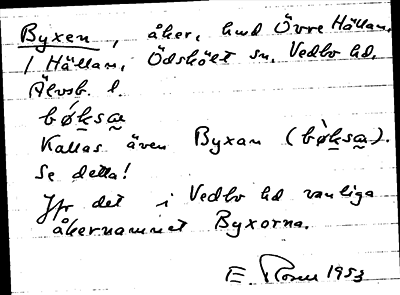 Byxen, åker, hmd Övre Hällan,
1 Hällan, Ödskölt sn, Vedbo hd,
Älvsb. l.
bø̀ksa̰
Kallas även Byxan (bø̀ksa̰).
Se detta!
Jfr det i Vedbo hd vanliga
åkernamnet Byxorna.
E. 1953